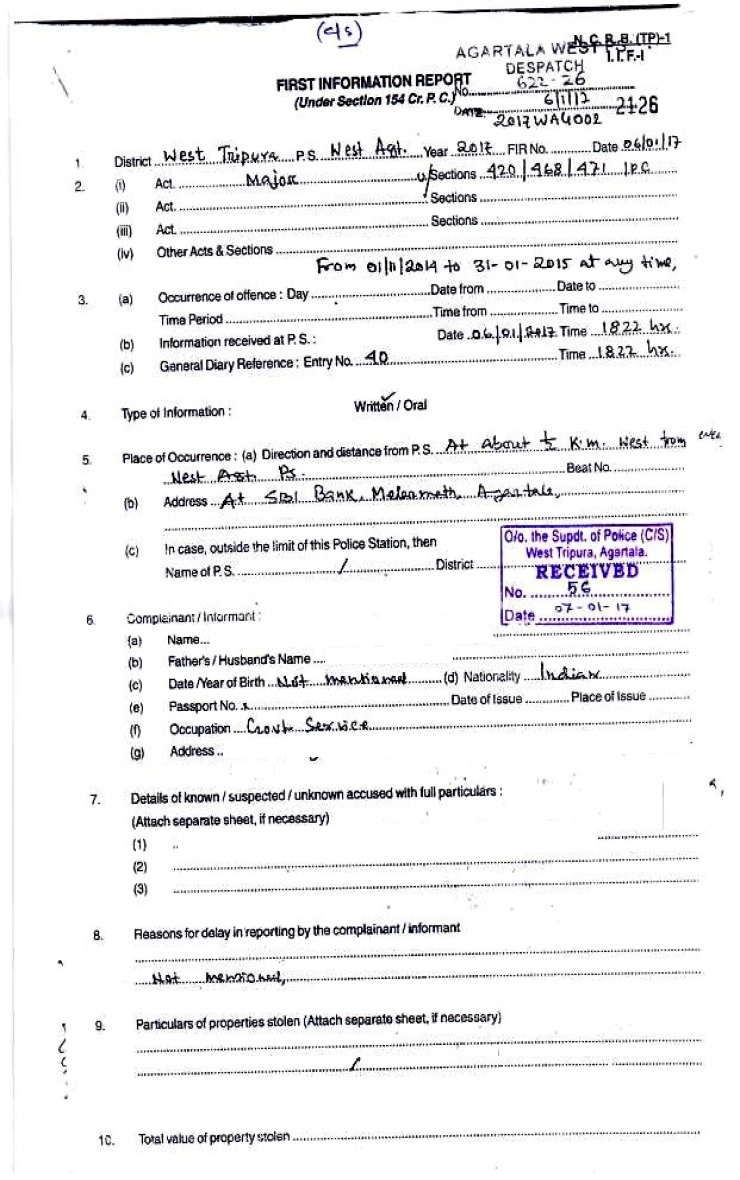 (c/s)
N.C.R.B. (TP)-1
AGARTALA WEST P.S. I.I.F.-I
DESPATCH
FIRST INFORMATION REPORT
No. 622-26
(Under Section 154 Cr. P. C.)
DATE 6/1/17 21-26
2017WA4002
1. District West Tripura P.S. West Agt. Year 2017 FIR No. Date 06/01/17
2. (i) Act. Major u/Sections 420/468/471 IPC
(ii) Act. Sections
(iii) Act. Sections
(iv) Other Acts & Sections
From 01/11/2014 to 31-01-2015 at any time,
3. (a) Occurrence of offence : Day Date from Date to
Time Period Time from Time to
(b) Information received at P. S. : Date 06/01/2017 Time 1822 hrs.
(c) General Diary Reference : Entry No. 40 Time 1822 hrs.
4. Type of Information : Written / Oral
5. Place of Occurrence : (a) Direction and distance from P.S. At about ½ K.m. West from
West Agt Ps. Beat No.
(b) Address At SBI Bank, Melarmath, Agartala,
(c) In case, outside the limit of this Police Station, then
Name of P. S. / District
O/o. the Supdt. of Police (C/S)
West Tripura, Agartala.
RECEIVED
No. 56
Date 07-01-17
6. Complainant / Informant :
(a) Name
(b) Father's / Husband's Name
(c) Date /Year of Birth Not mentioned (d) Nationality Indian
(e) Passport No. x Date of Issue Place of Issue
(f) Occupation Govt. Service
(g) Address
7. Details of known / suspected / unknown accused with full particulars :
(Attach separate sheet, if necessary)
(1)
(2)
(3)
8. Reasons for delay in reporting by the complainant / informant
Not mensioned,
9. Particulars of properties stolen (Attach separate sheet, if necessary)
/
10. Total value of property stolen